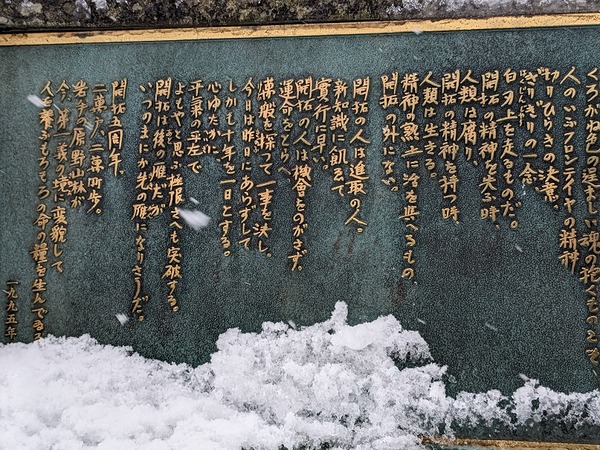 くろがね色の逞ましい魂の抱くものこそ、
人のいふフロンテイヤの精神
切りひらきの決意、
ぎりぎりの一念、
白刃上を走るものだ。
開拓の精神を失ふ時、
人類は腐り、
開拓の精神を持つ時、
人類は生きる。
精神の熱土に活を與へるもの、
開拓の外にない。
開拓の人は進取の人。
新知識に飢ゑて
實行に早い。
開拓の人は機會をのがさず、
運命をとらへ、
般を探つて一事を決し、
今日は昨日にあらずして
しかも十年を一日とする。
心ゆたかに、
平氣の平左で
よもやと思ふ極限さへも突破する。
開拓は後の雁だが
いつのまにか先の雁になりさうだ。
開拓五周年、
二萬戸、二萬町歩。
岩手の原野山林が
今、第一義の境に変貌して
人を養ふもろもろの命の糧を生んでゐる
一九九五年